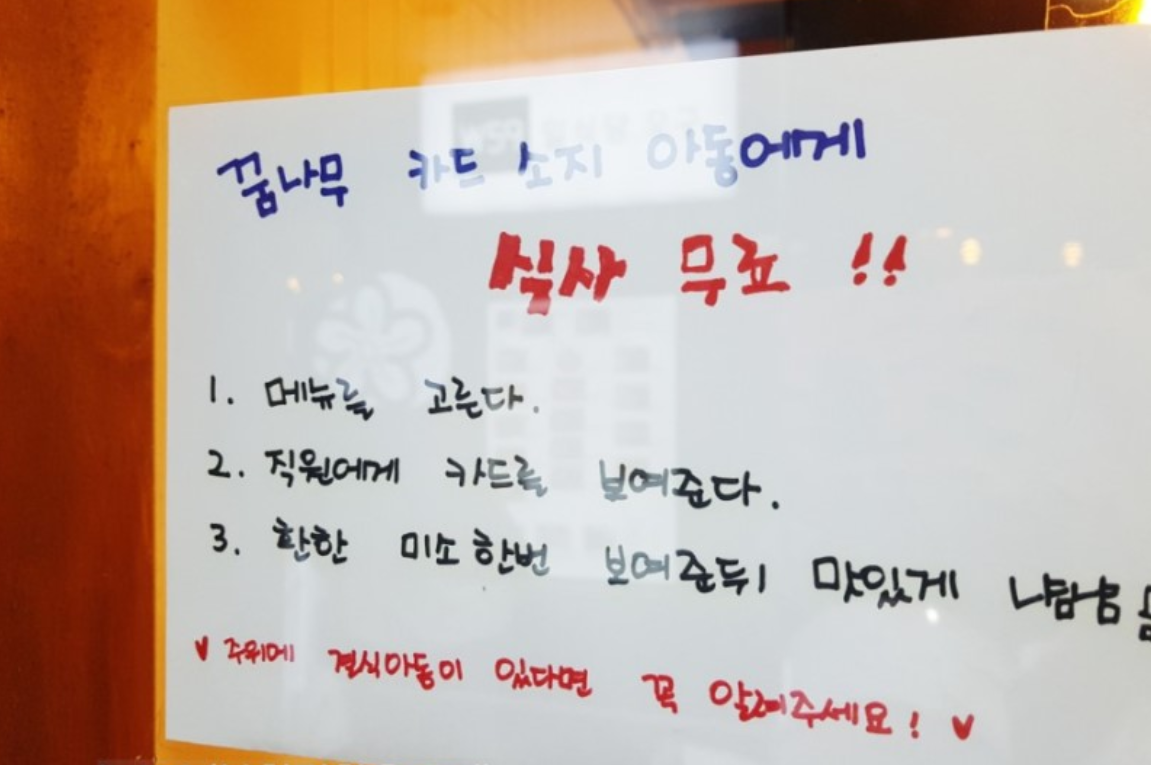 꿈나무 카드 소지 아동에게
식사 무료 !!
1. 메뉴를 고른다.
2. 직원에게 카드를 보여준다.
3. 환한 미소 한번 보여준뒤 맛있게 냠냠
♥ 주위에 결식아동이 있다면 꼭 알려주세요! ♥